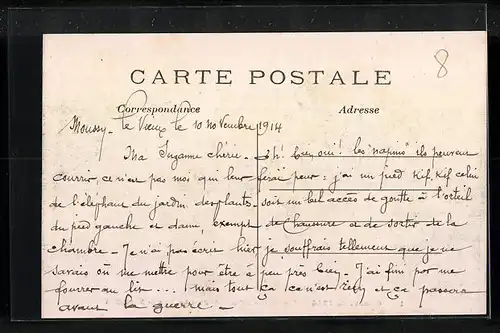 8
CARTE POSTALE
Correspondance
Adresse
Moussy-le Vieux le 10 novembre 1914
Ma Suzanne chérie - Oh! bien oui! les "lapins" ils peuvent
courir, ce n'est pas moi qui leur ferai peur: j'ai un pied kif, kif celui
de l'éléphant du jardin des plants - soit un bel accès de goutte à l'orteil
du pied gauche et dame, exempt de chaussure et de sortir de la
chambre - Je n'ai pas écrit hier je souffrais tellement que je ne
savais où me mettre pour être à peu près bien - J'ai fini par me
fourrer au lit... mais tout ça ce n'est rien et ça passera
avant la guerre -